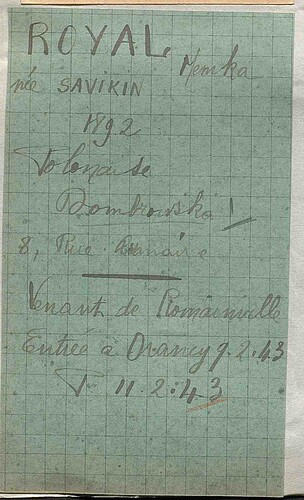 ROYAL Menka
née SAVIKIN
1892
Polonaise
Dombrowska
8, Rue Aumaire
Venant de Romainville
Entrée à Drancy 9.2.43
P. 11.2.43